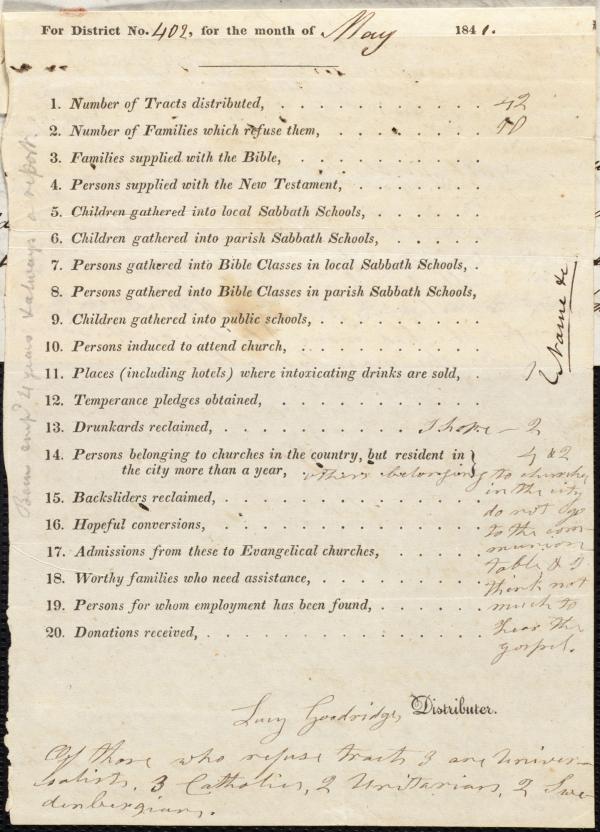 For District No. 402, for the month of May 1841.
1. Number of Tracts distributed, 42
2. Number of Families which refuse them, 10
3. Families supplied with the Bible,
4. Persons supplied with the New Testament,
5. Children gathered into local Sabbath Schools,
6. Children gathered into parish Sabbath Schools,
7. Persons gathered into Bible Classes in local Sabbath Schools,
8. Persons gathered into Bible Classes in parish Sabbath Schools,
9. Children gathered into public schools,
10. Persons induced to attend church,
11. Places (including hotels) where intoxicating drinks are sold, 1
12. Temperance pledges obtained,
13. Drunkards reclaimed, I hope — 2
14. Persons belonging to churches in the country, but resident in
the city more than a year,
others belonging to churches
in the city
do not go
to the com-
munion
table & I
think not
much to
hear the
gospel.
15. Backsliders reclaimed,
16. Hopeful conversions,
17. Admissions from these to Evangelical churches,
18. Worthy families who need assistance,
19. Persons for whom employment has been found,
20. Donations received,
Lucy Goodridge, Distributer.
Of those who refuse tracts 3 are Univer-
salists, 3 Catholics, 2 Unitarians, 2 Swe-
denborgians.
Name &c
Been 4 years & always a report.